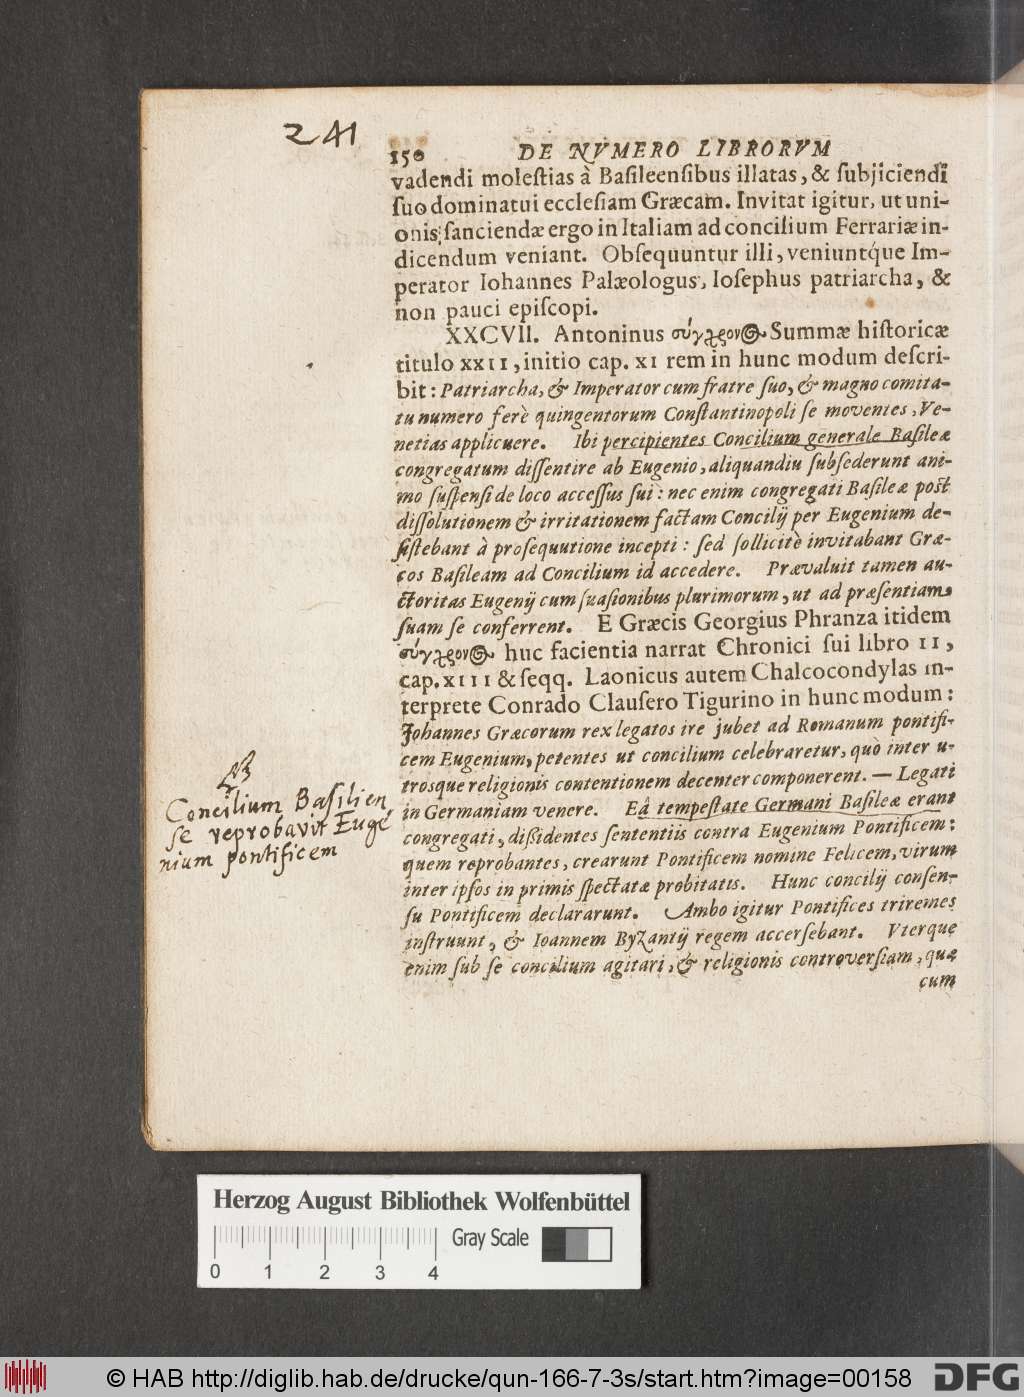 241
150 DE NVMERO LIBRORVM
vadendi molestias à Basileensibus illatas, & subjiciendi
suo dominatui ecclesiam Græcam. Invitat igitur, ut uni-
onis sanciendæ ergo in Italiam ad concilium Ferrariæ in-
dicendum veniant. Obsequuntur illi, veniuntq́ue Im-
perator Iohannes Palæologus, Iosephus patriarcha, &
non pauci episcopi.
XXCVII. Antoninus σύγχρονος Summæ historicæ
titulo XXII, initio cap. XI rem in hunc modum descri-
bit: Patriarcha, & Imperator cum fratre suo, & magno comita-
tu numero ferè quingentorum Constantinopoli se moventes, Ve-
netias applicuere. Ibi percipientes Concilium generale Basileæ
congregatum dissentire ab Eugenio, aliquandiu subsederunt ani-
mo suspensi de loco accessus sui: nec enim congregati Basileæ post
dissolutionem & irritationem factam Concilij per Eugenium de-
sistebant à prosequutione incepti: sed sollicitè invitabant Græ-
cos Basileam ad Concilium id accedere. Prævaluit tamen au-
ctoritas Eugenij cum suasionibus plurimorum, ut ad præsentiam
suam se conferrent. E Græcis Georgius Phranza itidem
σύγχρονος huc facientia narrat Chronici sui libro II,
cap. XIII & seqq. Laonicus autem Chalcocondylas in-
terprete Conrado Clausero Tigurino in hunc modum:
Johannes Græcorum rex legatos ire jubet ad Romanum pontifi-
cem Eugenium, petentes ut concilium celebraretur, quò inter u-
trosque religionis contentionem decenter componerent. — Legati
in Germaniam venere. Eâ tempestate Germani Basileæ erant
congregati, dißidentes sententiis contra Eugenium Pontificem:
quem reprobantes, crearunt Pontificem nomine Felicem, virum
inter ipsos in primis spectatæ probitatis. Hunc concilij consen-
su Pontificem declararunt. Ambo igitur Pontifices triremes
instruunt, & Ioannem Byzantij regem accersebant. Vterque
enim sub se concilium agitari, & religionis controversiam, quæ
cum
NB
Concilium Basilien
se reprobavit Euge
nium pontificem
Herzog August Bibliothek Wolfenbüttel
Gray Scale
0 1 2 3 4
© HAB http://diglib.hab.de/drucke/qun-166-7-3s/start.htm?image=00158
DFG